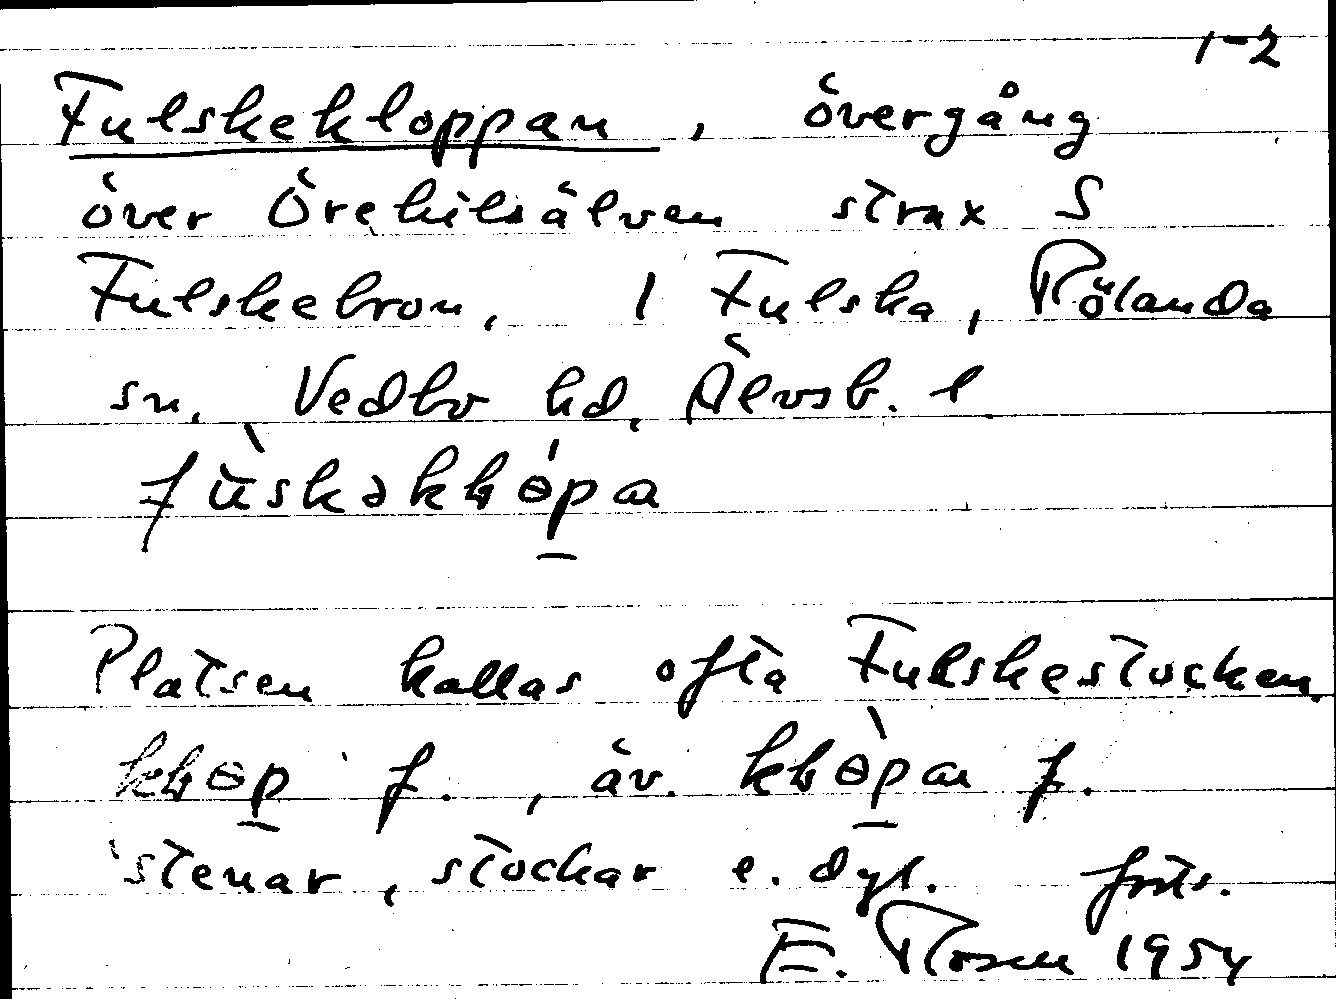 1-2
Fulskekloppan, övergång
över Örekilsälven strax S
Fulskebron. I Fulska, Rölanda
sn, Vedbo hd, Älvsb. l
fùskəkꞎɵ́pa
Platsen kallas ofta Fulskestocken.
kꞎɵp f., äv. kꞎɵ̀pan f.
'stenar, stockar e. dyl. forts.
E. Rosen 1954